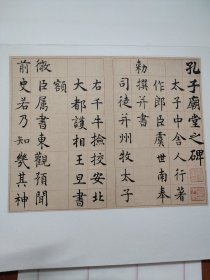 孔子廟堂之碑
太子中舍人行著
作郎臣虞世南奉
勅撰并書
司徒并州牧太子
右千牛撿挍安北
大都護相王旦書
額
微臣属書東觀預聞
前史若乃知幾其神